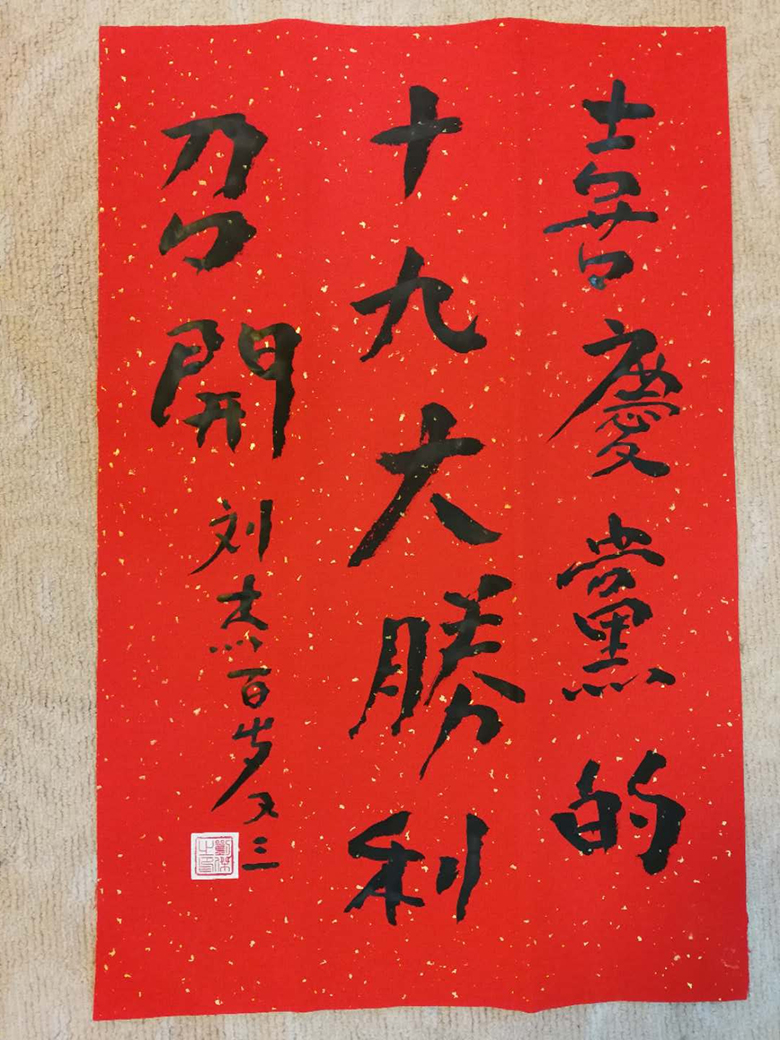 喜慶黨的
十九大勝利
召開
刘杰百岁又三
劉傑之印